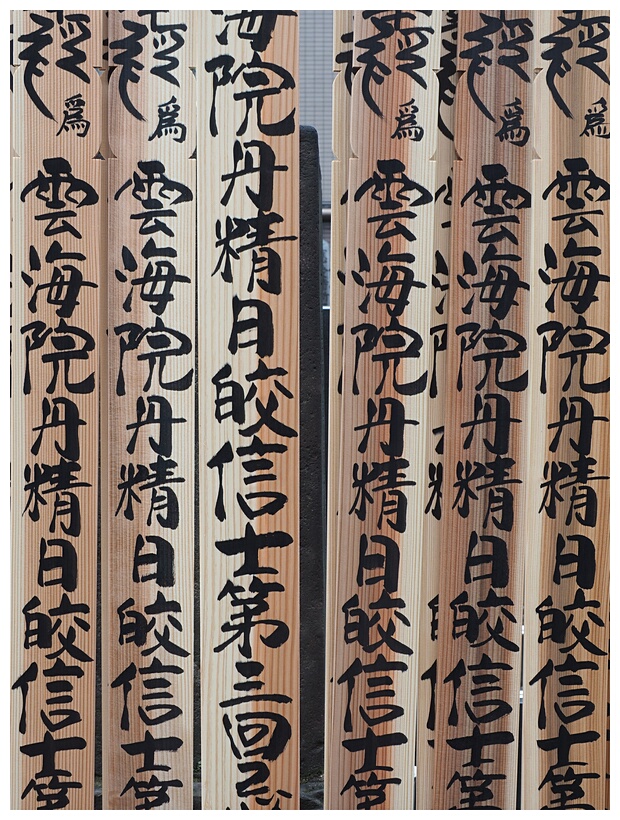 爲 雲海院丹精日皎信士第
爲 雲海院丹精日皎信士第
爲 雲海院丹精日皎信士第
海院丹精日皎信士第三回忌
爲 雲海院丹精日皎信士第
爲 雲海院丹精日皎信士第